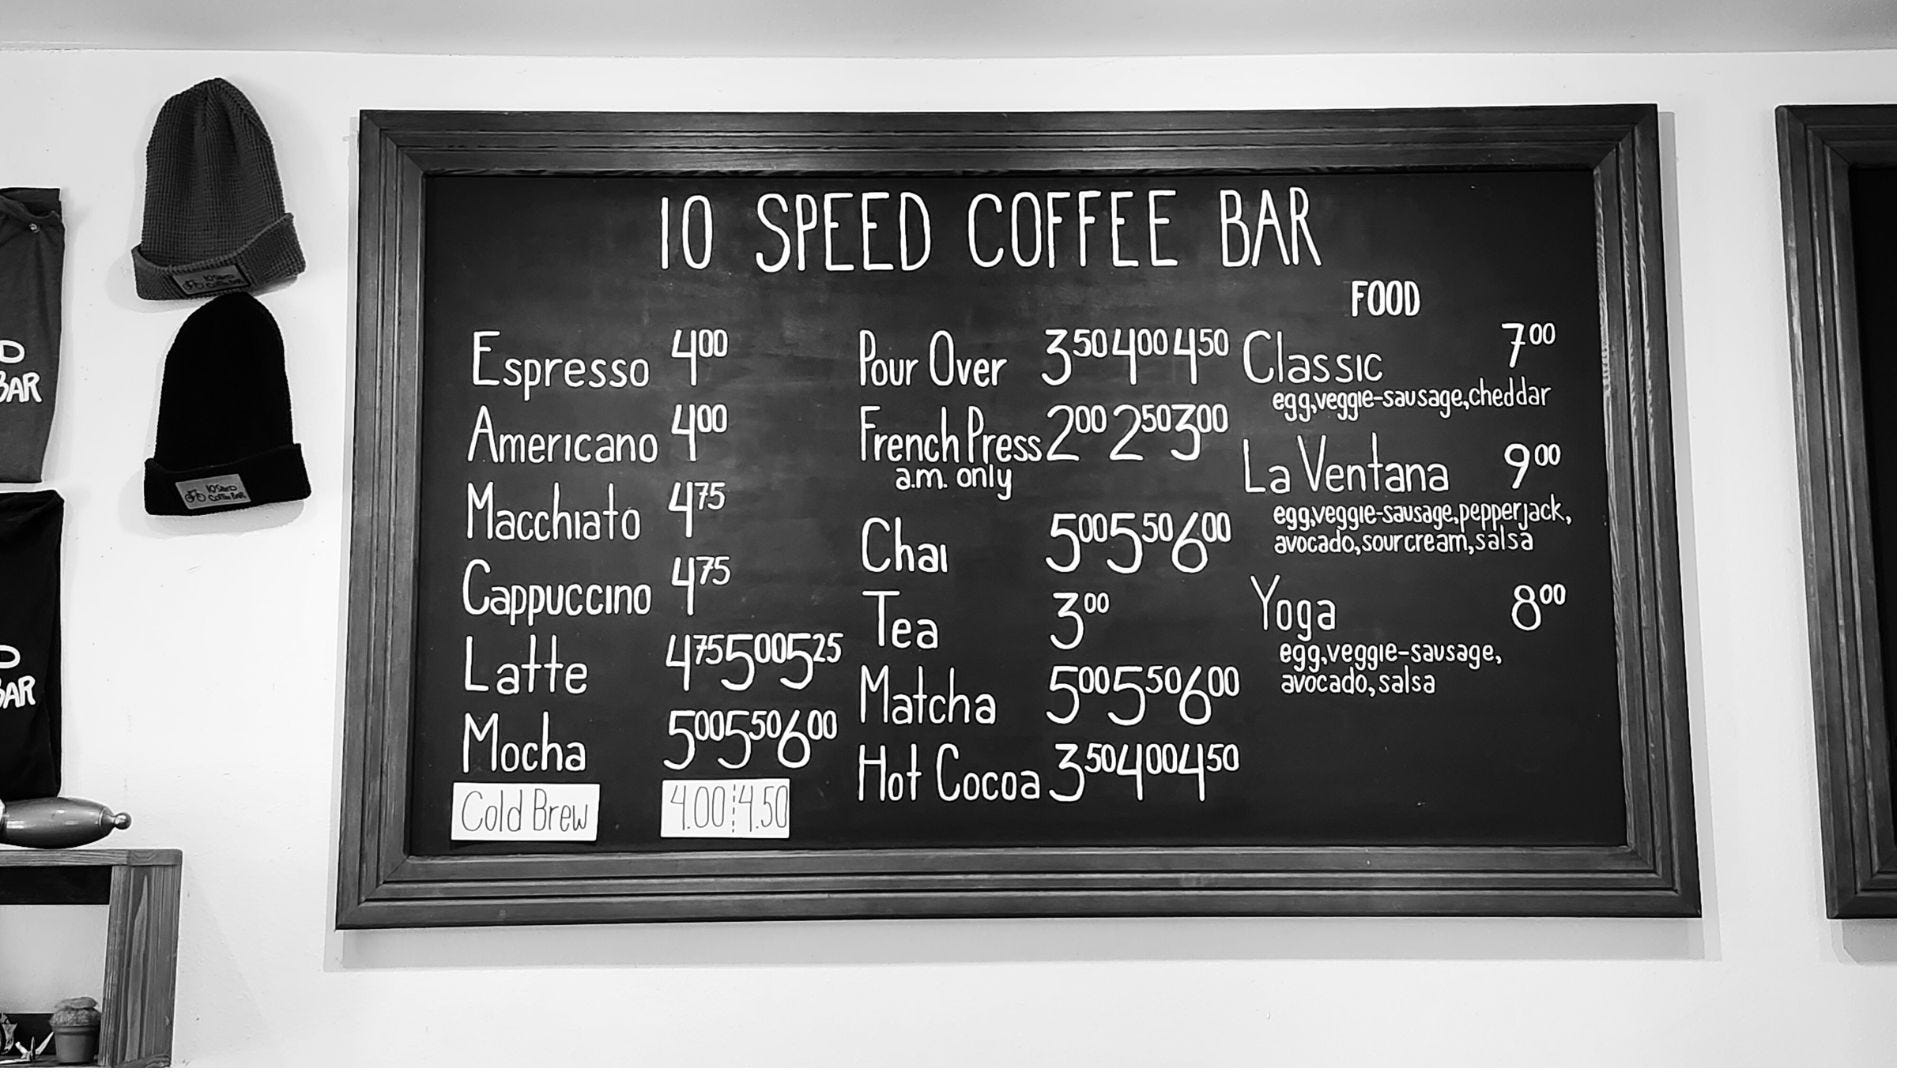 10 SPEED COFFEE BAR
Espresso 4.00
Americano 4.00
Macchiato 4.75
Cappuccino 4.75
Latte 4.75 5.00 5.25
Mocha 5.00 5.50 6.00
Cold Brew 4.00 4.50
Pour Over 3.50 4.00 4.50
French Press 2.00 2.50 3.00
a.m. only
Chai 5.00 5.50 6.00
Tea 3.00
Matcha 5.00 5.50 6.00
Hot Cocoa 3.50 4.00 4.50
FOOD
Classic 7.00
egg, veggie-sausage, cheddar
La Ventana 9.00
egg, veggie-sausage, pepperjack,
avocado, sour cream, salsa
Yoga 8.00
egg, veggie-sausage,
avocado, salsa
10 SPEED
COFFEE BAR
10 SPEED
COFFEE BAR
D
BAR
D
BAR